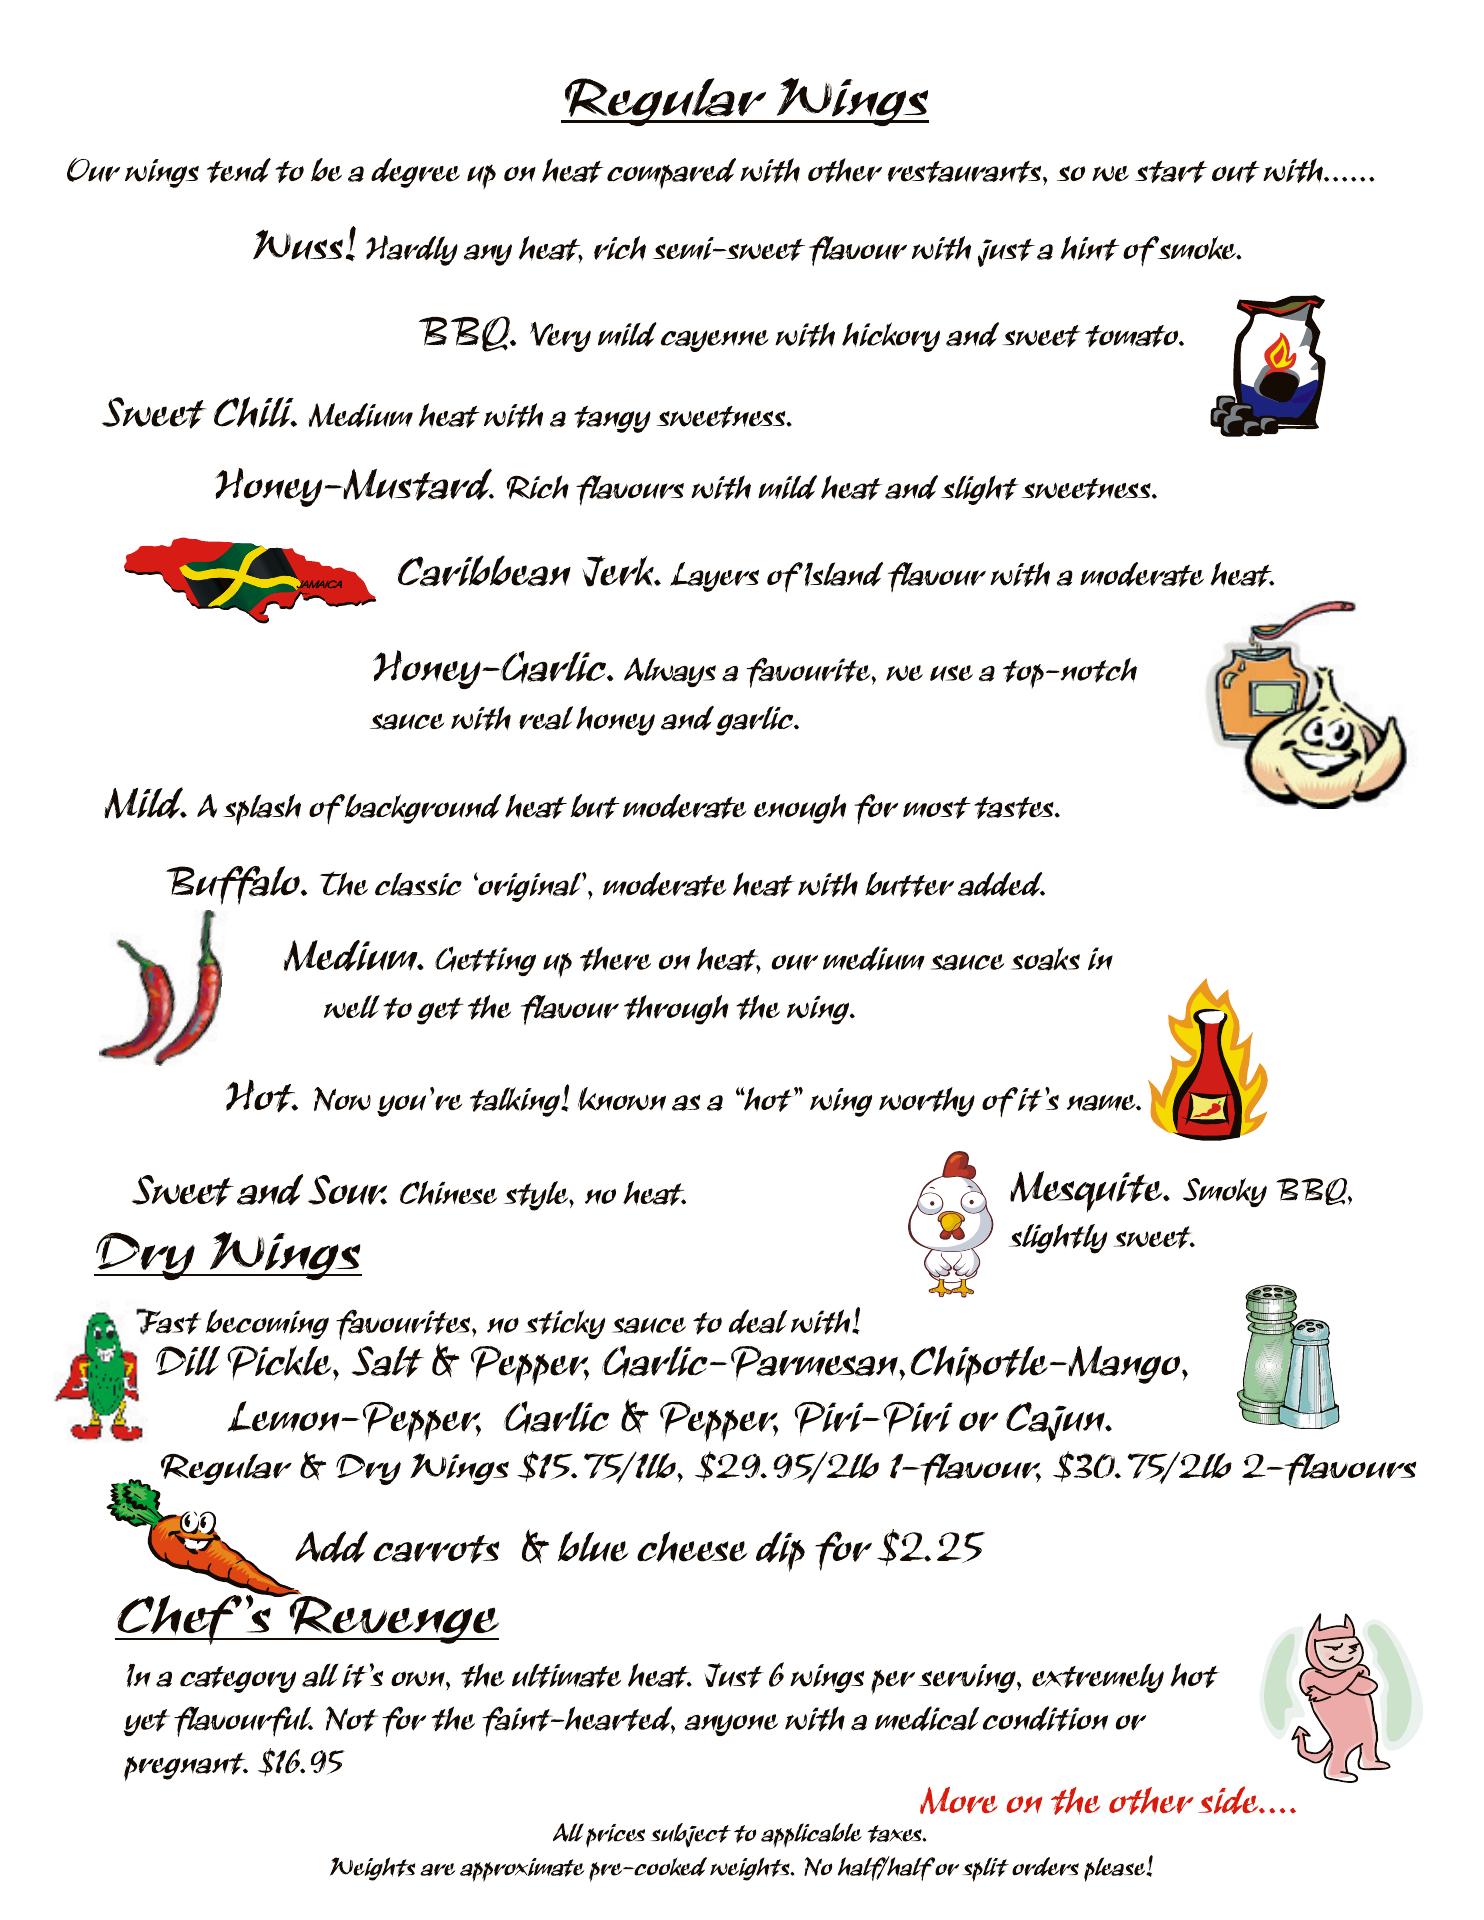 Regular Wings
Our wings tend to be a degree up on heat compared with other restaurants, so we start out with......
Wuss! Hardly any heat, rich semi-sweet flavour with just a hint of smoke.
BBQ. Very mild cayenne with hickory and sweet tomato.
Sweet Chili. Medium heat with a tangy sweetness.
Honey-Mustard. Rich flavours with mild heat and slight sweetness.
JAMAICA
Caribbean Jerk. Layers of Island flavour with a moderate heat.
Honey-Garlic. Always a favourite, we use a top-notch
sauce with real honey and garlic.
Mild. A splash of background heat but moderate enough for most tastes.
Buffalo. The classic 'original', moderate heat with butter added.
Medium. Getting up there on heat, our medium sauce soaks in
well to get the flavour through the wing.
Hot. Now you're talking! Known as a "hot" wing worthy of it's name.
Sweet and Sour. Chinese style, no heat.
Mesquite. Smoky BBQ,
slightly sweet.
Dry Wings
Fast becoming favourites, no sticky sauce to deal with!
Dill Pickle, Salt & Pepper, Garlic-Parmesan,Chipotle-Mango,
Lemon-Pepper, Garlic & Pepper, Piri-Piri or Cajun.
Regular & Dry Wings $15.75/1lb, $29.95/2lb 1-flavour, $30.75/2lb 2-flavours
Add carrots & blue cheese dip for $2.25
Chef's Revenge
In a category all it's own, the ultimate heat. Just 6 wings per serving, extremely hot
yet flavourful. Not for the faint-hearted, anyone with a medical condition or
pregnant. $16.95
More on the other side....
All prices subject to applicable taxes.
Weights are approximate pre-cooked weights. No half/half or split orders please!